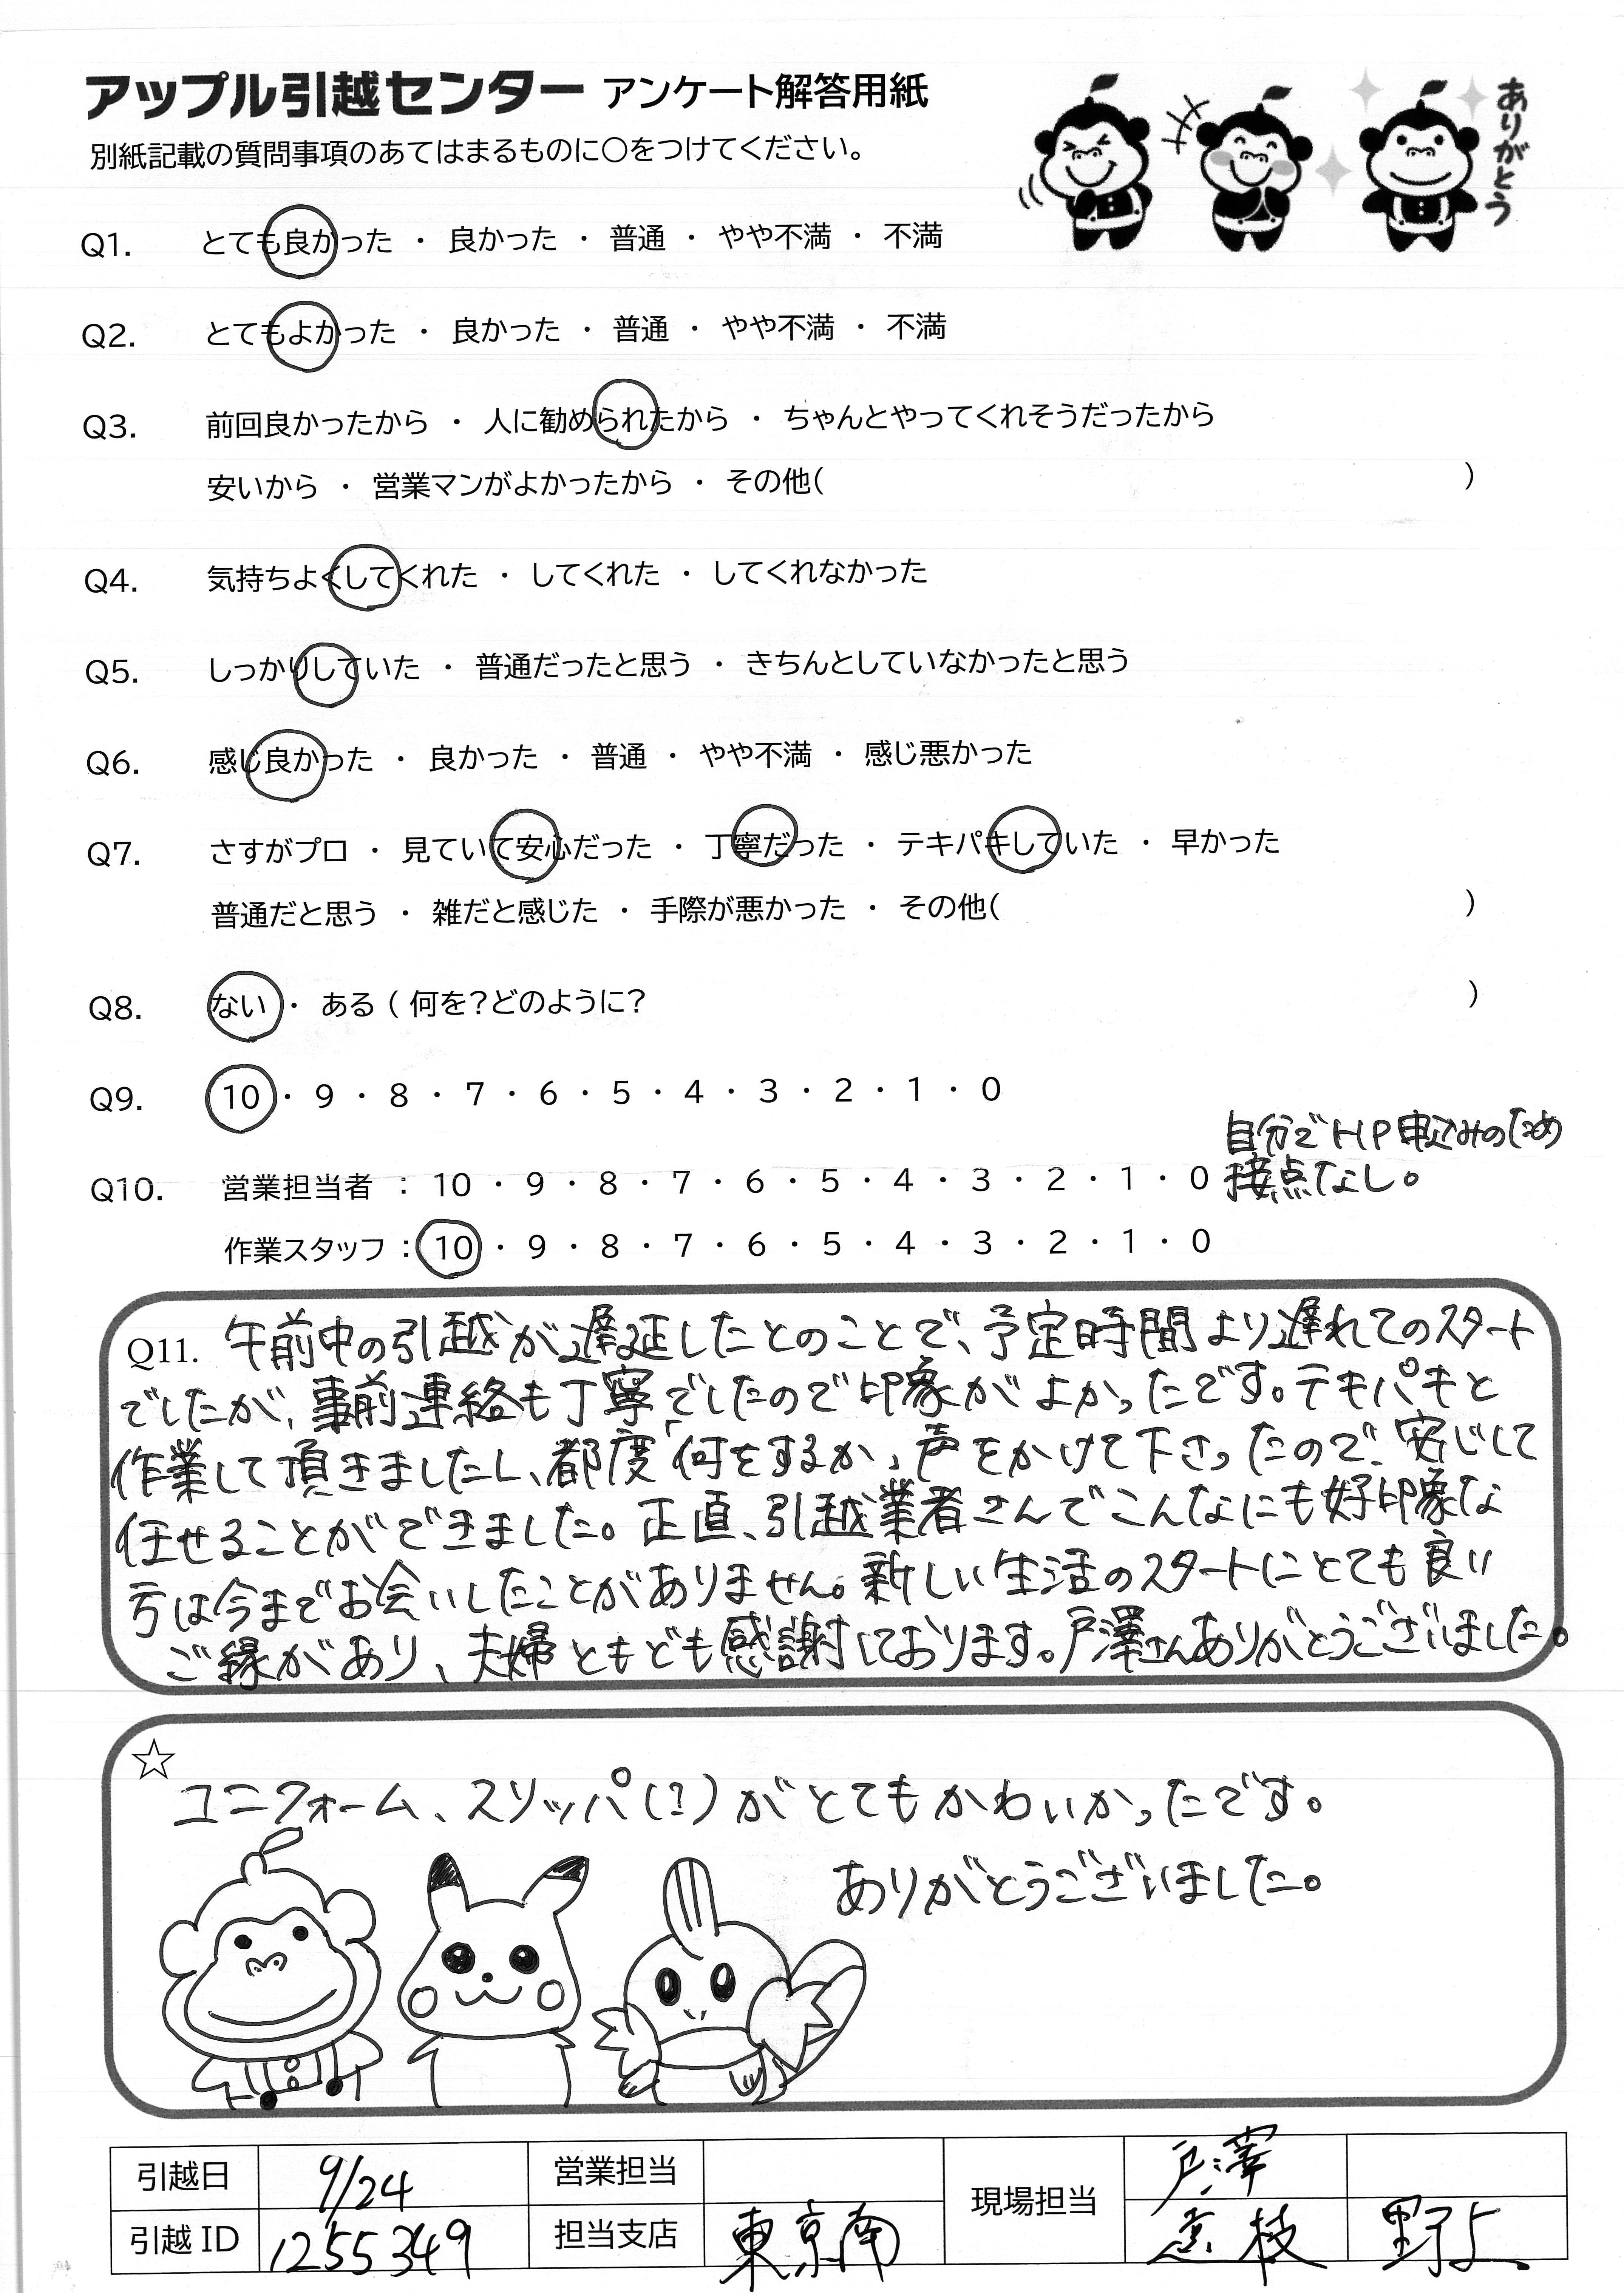 アップル引越センター アンケート解答用紙
別紙記載の質問事項のあてはまるものに○をつけてください。
ありがとう
Q1. とても良かった ・ 良かった ・ 普通 ・ やや不満 ・ 不満
Q2. とてもよかった ・ 良かった ・ 普通 ・ やや不満 ・ 不満
Q3. 前回良かったから ・ 人に勧められたから ・ ちゃんとやってくれそうだったから
安いから ・ 営業マンがよかったから ・ その他( )
Q4. 気持ちよくしてくれた ・ してくれた ・ してくれなかった
Q5. しっかりしていた ・ 普通だったと思う ・ きちんとしていなかったと思う
Q6. 感じ良かった ・ 良かった ・ 普通 ・ やや不満 ・ 感じ悪かった
Q7. さすがプロ ・ 見ていて安心だった ・ 丁寧だった ・ テキパキしていた ・ 早かった
普通だと思う ・ 雑だと感じた ・ 手際が悪かった ・ その他( )
Q8. ない ・ ある ( 何を?どのように? )
Q9. 10 ・ 9 ・ 8 ・ 7 ・ 6 ・ 5 ・ 4 ・ 3 ・ 2 ・ 1 ・ 0
自分でHP申込みのため
Q10. 営業担当者 : 10 ・ 9 ・ 8 ・ 7 ・ 6 ・ 5 ・ 4 ・ 3 ・ 2 ・ 1 ・ 0 接点なし。
作業スタッフ : 10 ・ 9 ・ 8 ・ 7 ・ 6 ・ 5 ・ 4 ・ 3 ・ 2 ・ 1 ・ 0
Q11. 午前中の引越が遅延したとのことで、予定時間より遅れてのスタート
でしたが、事前連絡も丁寧でしたので印象がよかったです。テキパキと
作業して頂きましたし、都度「何をするか」声をかけて下さったので、安心して
任せることができました。正直、引越業者さんでこんなにも好印象な
方は今までお会いしたことがありません。新しい生活のスタートにとても良い
ご縁があり、夫婦ともども感謝しております。戸澤さんありがとうございました。
☆
ユニフォーム、スリッパ(?)がとてもかわいかったです。
ありがとうございました。
引越日 9/24 営業担当 現場担当 戸澤
引越ID 1255349 担当支店 東京南 枝 野上